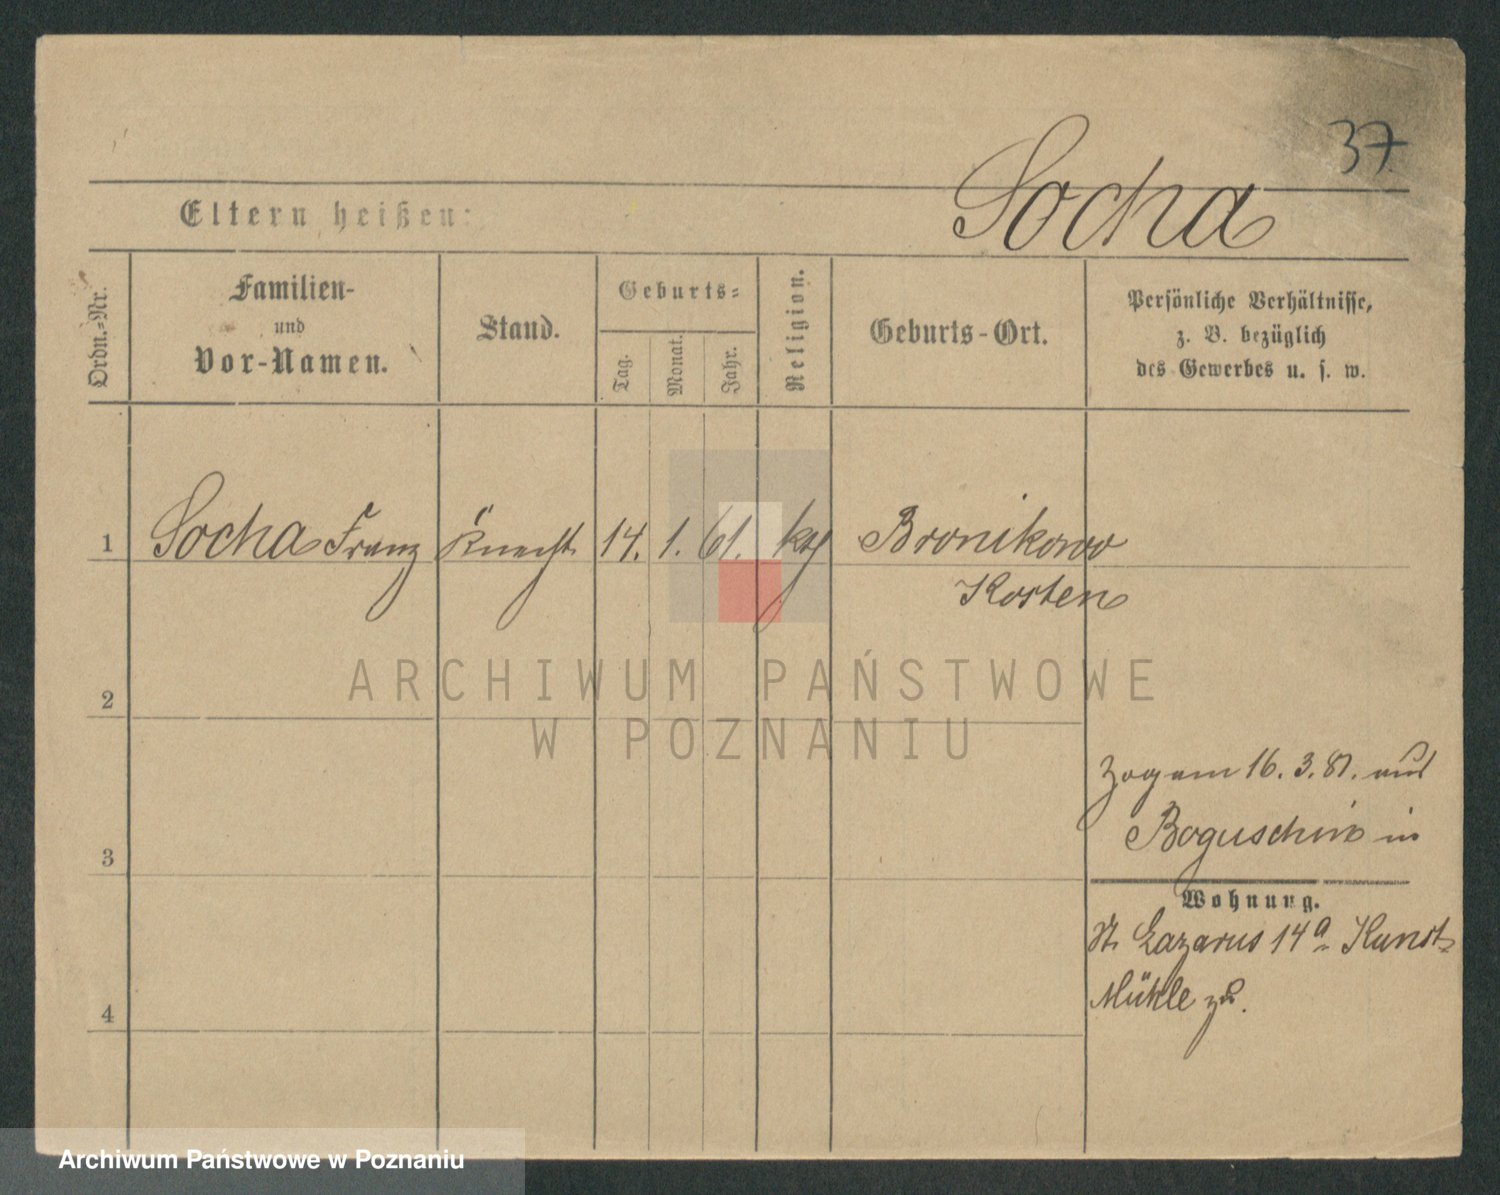 37.
Socha
Eltern heißen:
Ordn.-Nr.
Familien-
und
Vor-Namen.
Stand.
Geburts-
Tag.
Monat.
Jahr.
Religion.
Geburts-Ort.
Persönliche Verhältnisse,
z. B. bezüglich
des Gewerbes u. s. w.
1 Socha Franz Knecht 14. 1. 61. kth Bronikowo
Kosten
2
3
4
Zog am 16. 3. 81. aus
Boguschin in
Wohnung.
St. Lazarus 14a Kunst-
Mühle zu.
ARCHIWUM PAŃSTWOWE
W POZNANIU
Archiwum Państwowe w Poznaniu